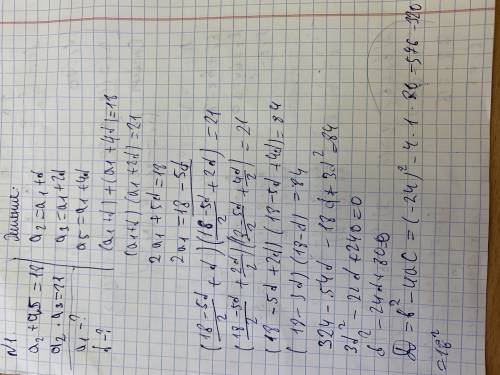 N1.
a2 + a5 = 18
a2 · a3 = 21
a1 - ?
d - ?
Решение:
a2 = a1 + d
a3 = a1 + 2d
a5 = a1 + 4d
(a1 + d) + (a1 + 4d) = 18
(a1 + d) (a1 + 2d) = 21
2a1 + 5d = 18
2a1 = 18 - 5d
((18 - 5d)/2 + d) ((18 - 5d)/2 + 2d) = 21
((18 - 5d + 2d)/2) ((18 - 5d + 4d)/2) = 21
(18 - 5d + 2d) (18 - 5d + 4d) = 84
(18 - 3d) (18 - d) = 84
324 - 54d - 18d + 3d² = 84
3d² - 72d + 240 = 0
d² - 24d + 80 = 0
D = b² - 4ac = (-24)² - 4 · 1 · 80 = 576 - 320
= 16²